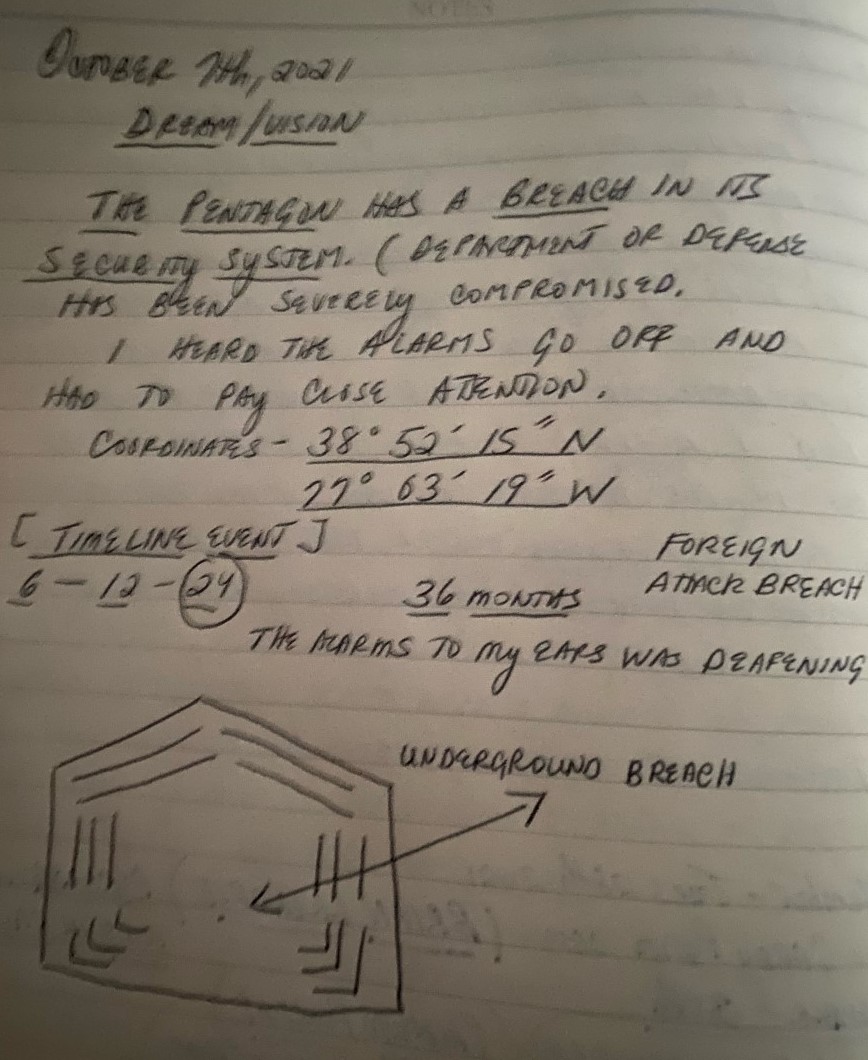 NOTES
OCTOBER 7th, 2021
DREAM/VISION
THE PENTAGON HAS A BREACH IN ITS
SECURITY SYSTEM. ( DEPARTMENT OF DEFENSE
HAS BEEN SEVERELY COMPROMISED.
I HEARD THE ALARMS GO OFF AND
HAD TO PAY CLOSE ATTENTION.
COORDINATES - 38° 52′ 15″ N
77° 03′ 19″ W
[ TIMELINE EVENT ]
6 - 12 - 24
36 MONTHS
FOREIGN
ATTACK BREACH
THE ALARMS TO MY EARS WAS DEAFENING
UNDERGROUND BREACH